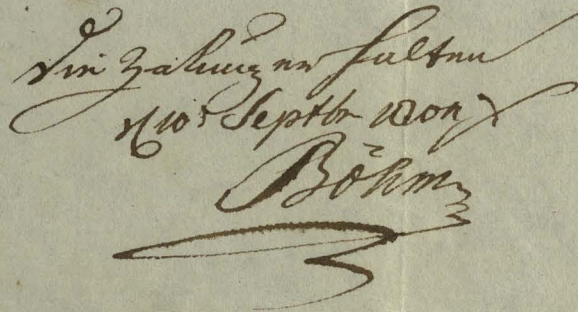 Die Zalung erhalten
d 10t Septbr 180
Böhm